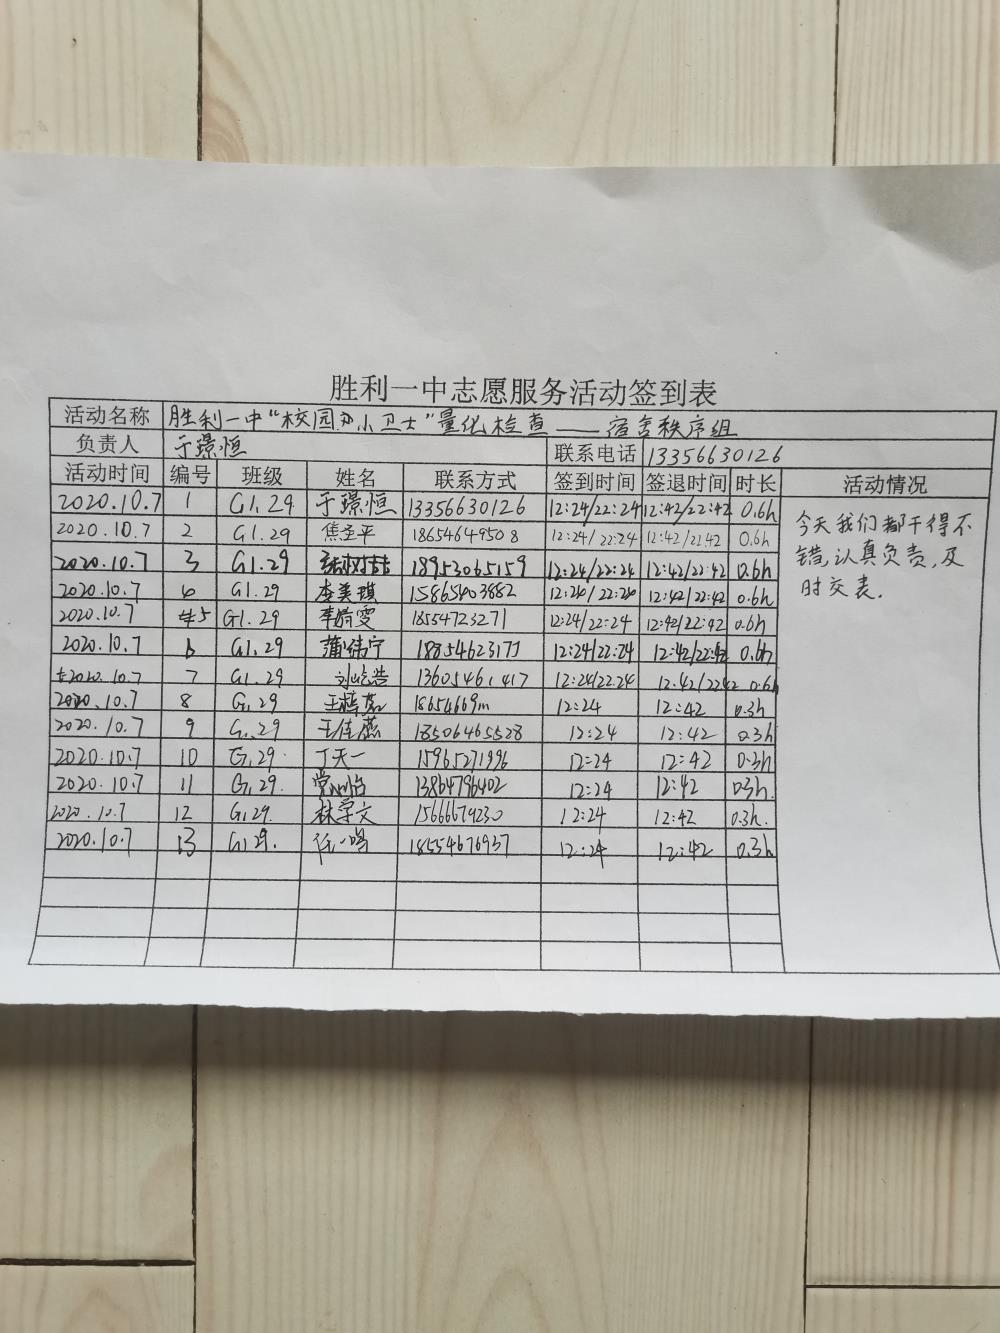 胜利一中志愿服务活动签到表
活动名称 胜利一中“校园 小卫士”量化检查——宿舍秩序组
负责人 于璟恒 联系电话 13356630126
活动时间 编号 班级 姓名 联系方式 签到时间 签退时间 时长 活动情况
2020.10.7 1 G1.29 于璟恒 13356630126 12:24/22:24 12:42/22:42 0.6h
今天我们都干得不
错,认真负责,及
时交表.
2020.10.7 2 G1.29 焦圣平 18654649508 12:24/22:24 12:42/22:42 0.6h
2020.10.7 3 G1.29 18953065159 12:24/22:24 12:42/22:42 0.6h
2020.10.7 G1.29 李美琪 15865403882 12:24/22:24 12:42/22:42 0.6h
2020.10.7 5 G1.29 李婧雯 18554723271 12:24/22:24 12:42/22:42 0.6h
2020.10.7 6 G1.29 蒲纬宁 12:24/22:24 12:42/22:42 0.6h
2020.10.7 7 G1.29 13605461417 12:24/22:24 12:42/22:42 0.6h
2020.10.7 8 G1.29 12:24 12:42 0.3h
2020.10.7 9 G1.29 王佳燕 18506465528 12:24 12:42 0.3h
2020.10.7 10 G1.29. 丁天一 15965271996 12:24 12:42 0.3h
2020.10.7 11 G1.29. 常心怡 13864796402 12:24 12:42 0.3h.
2020.10.7 12 G1.29. 林学文 15666679230 12:24 12:42 0.3h.
2020.10.7 13 G1.29. 18554676937 12:24 12:42 0.3h